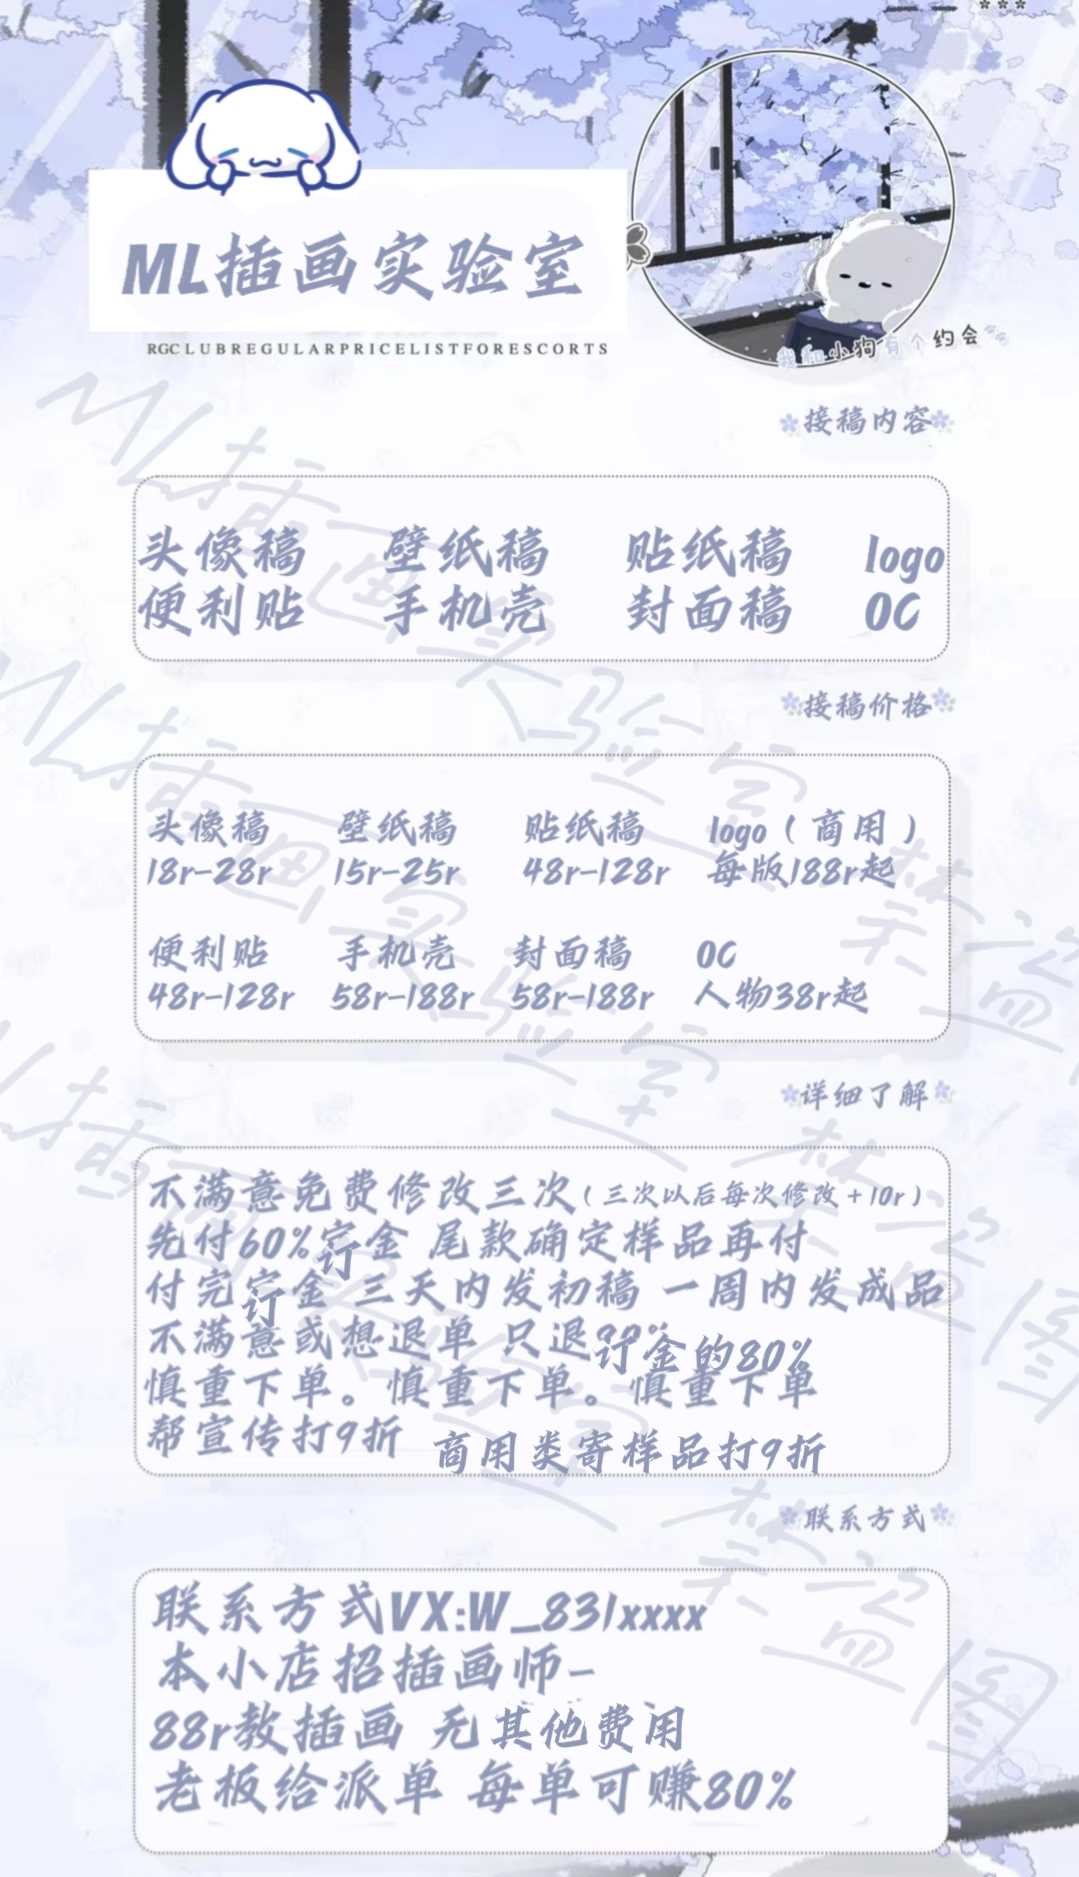 ***
ML插画实验室
RGCLUBREGULARPRICELISTFORESCORTS
我和小狗有个约会
接稿内容
头像稿 壁纸稿 贴纸稿 logo
便利贴 手机壳 封面稿 OC
接稿价格
头像稿 壁纸稿 贴纸稿 logo（商用）
18r-28r 15r-25r 48r-128r 每版188r起
便利贴 手机壳 封面稿 OC
48r-128r 58r-188r 58r-188r 人物38r起
详细了解
不满意免费修改三次（三次以后每次修改+10r）
先付60%订金 尾款确定样品再付
付完订金 三天内发初稿 一周内发成品
不满意或想退单 只退订金的80%
慎重下单。慎重下单。慎重下单
帮宣传打9折 商用类寄样品打9折
联系方式
联系方式VX:W_831xxxx
本小店招插画师-
88r教插画 无其他费用
老板给派单 每单可赚80%
ML插画实验室 禁盗图
ML插画实验室 禁盗图
ML插画实验室 禁盗图